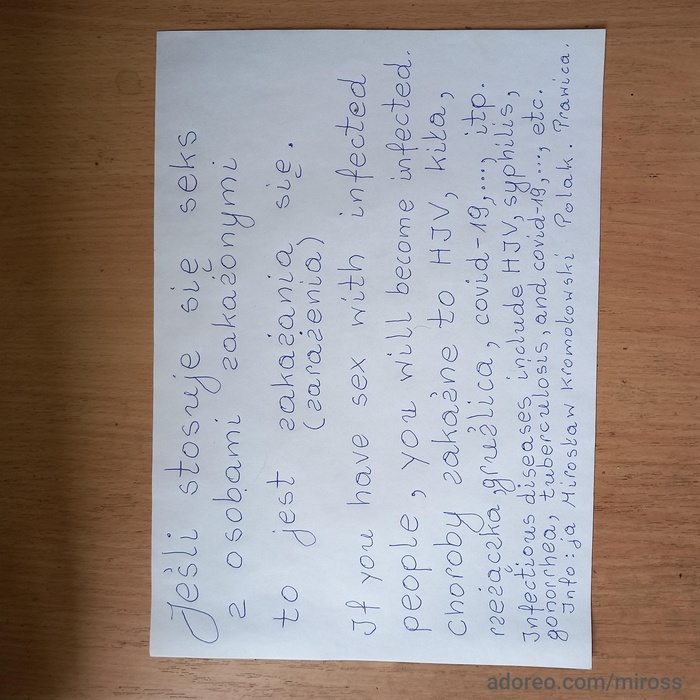 Jeśli stosuje się seks
z osobami zakażonymi
to jest zakażania się.
(zarażenia)
If you have sex with infected
people, you will become infected.
choroby zakaźne to HJV, kiła,
rzeżączka, gruźlica, covid-19,..., itp.
Infectious diseases include HJV, syphilis,
gonorrhea, tuberculosis, and covid-19,..., etc.
Info: ja Mirosław Kromołowski Polak. Prawica.
adoreo.com/miross